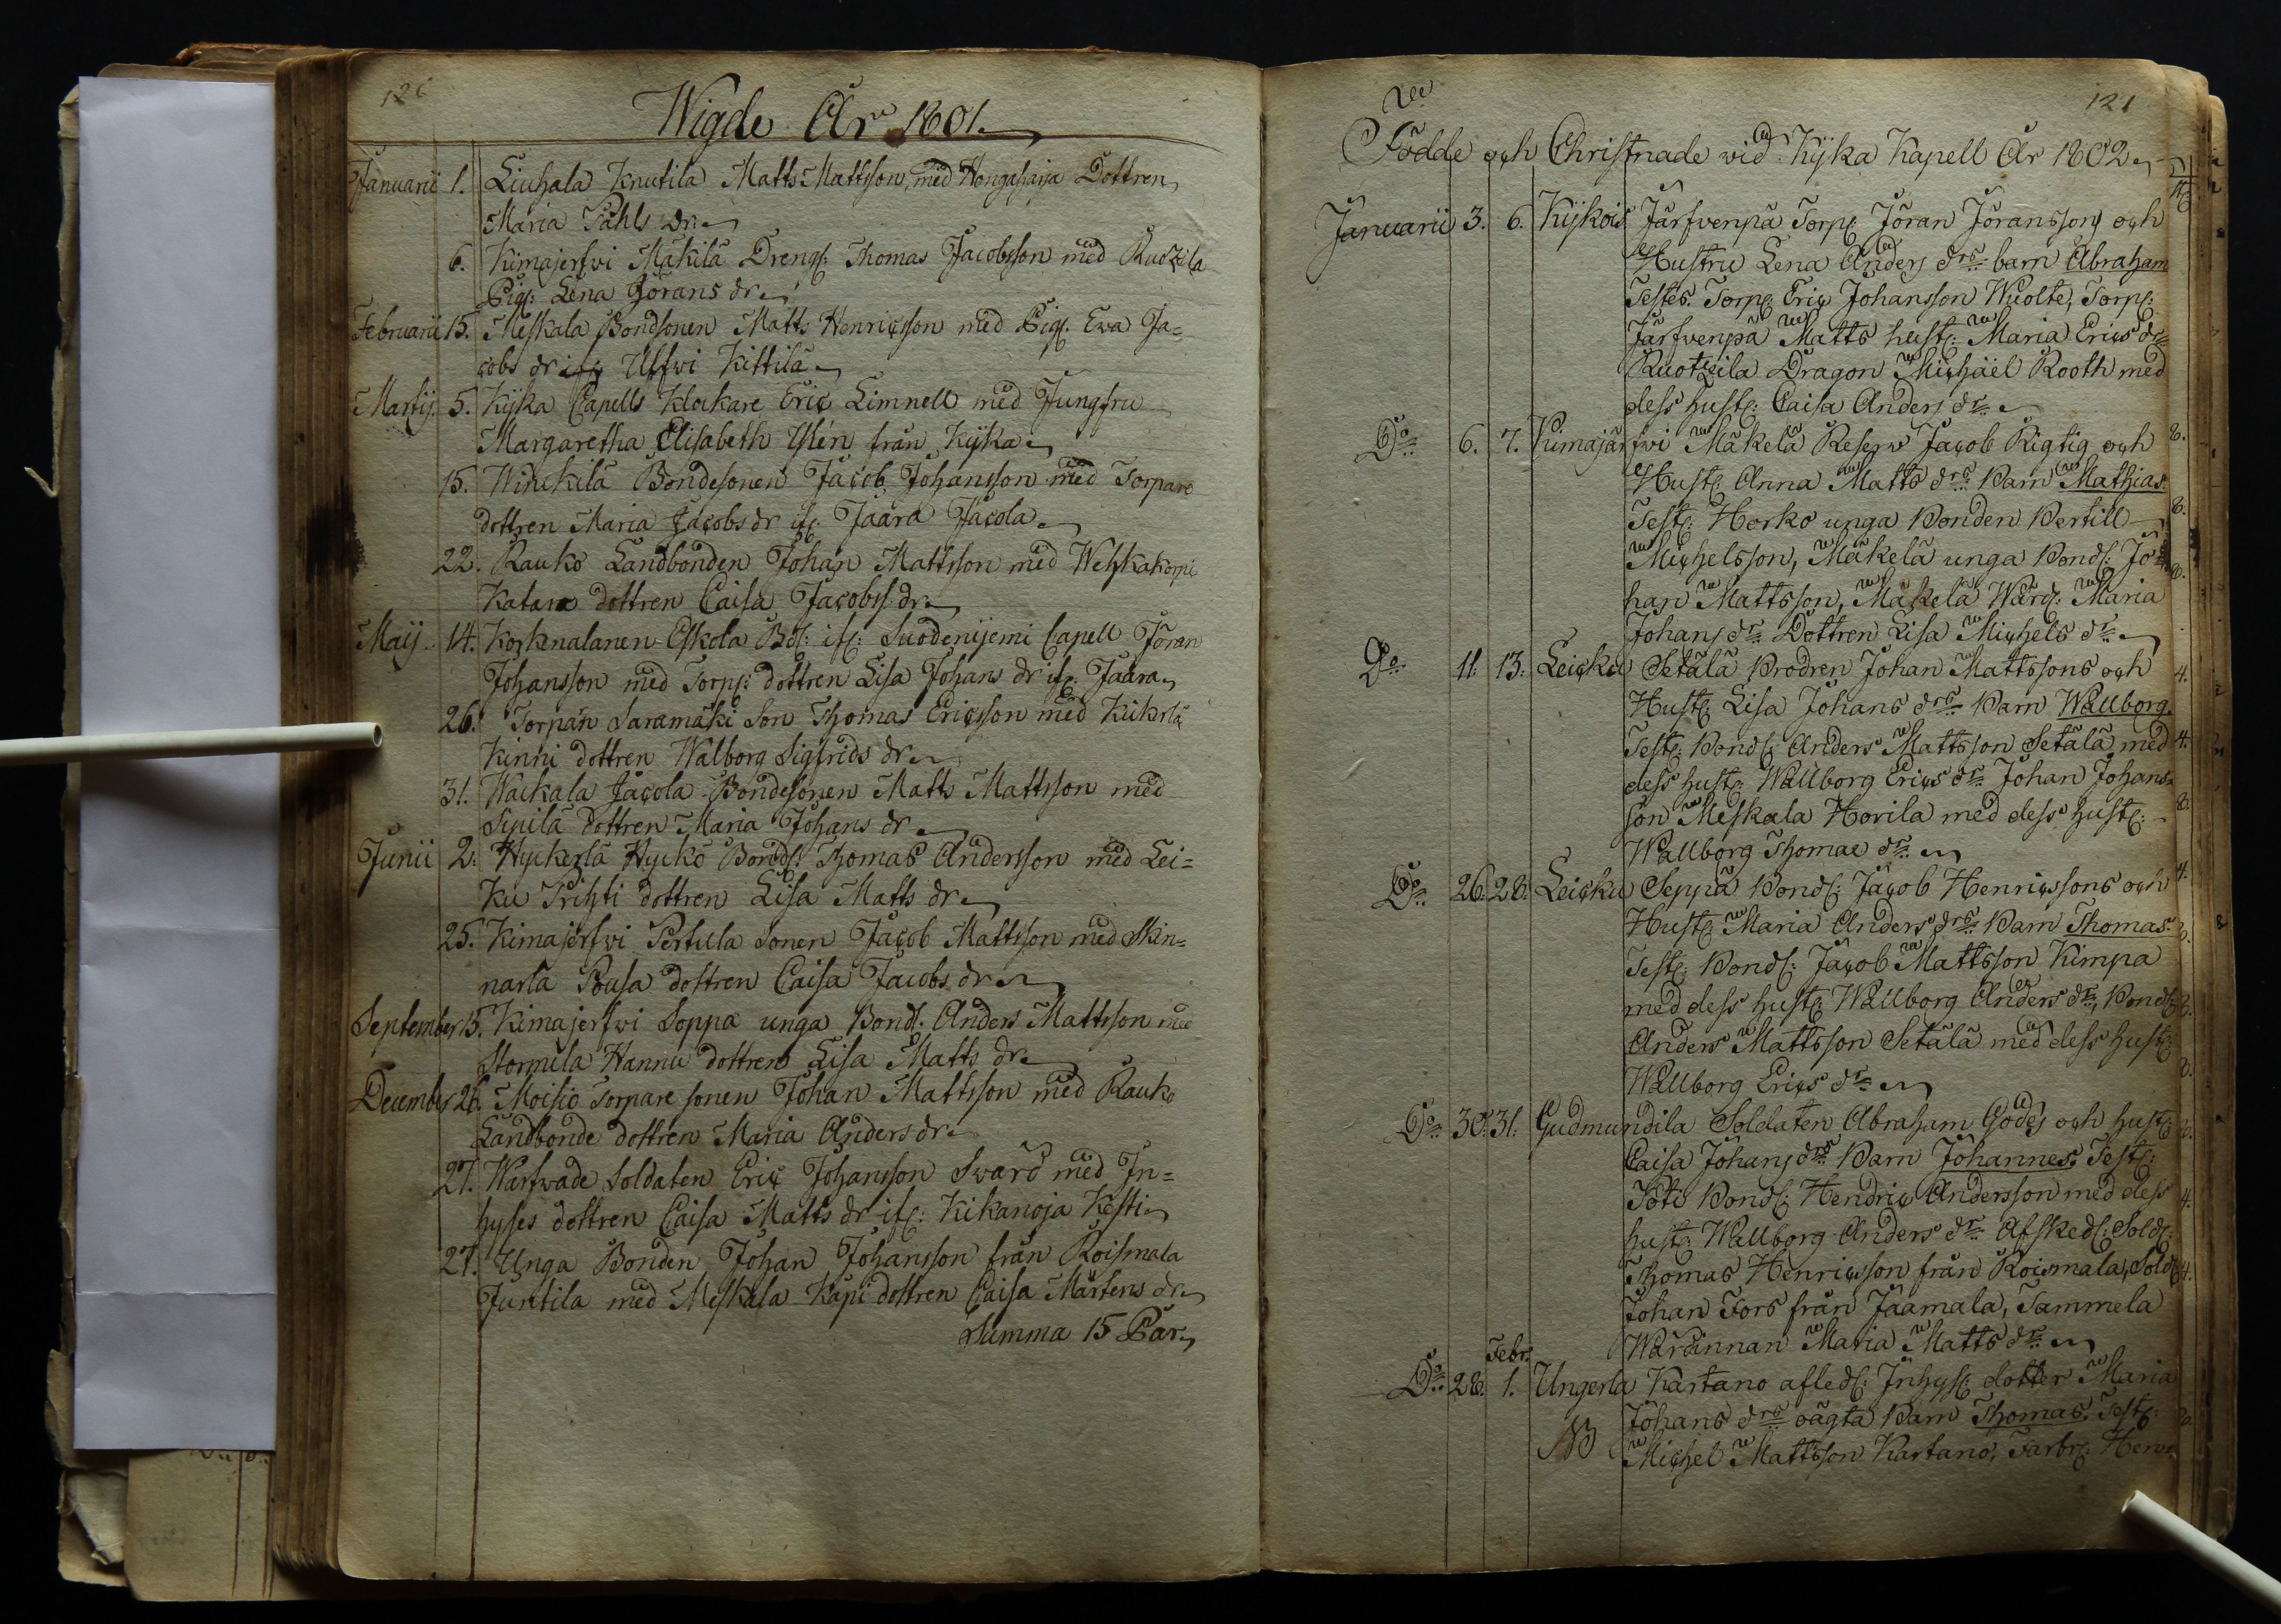 120
Wigde År 1801.
Januarii 1. Liuhala Knutila Matts Mattsson, med Hongaharja Dottren
Maria Påhls dr.
6. Kimajerfwi Mäkilä Dreng: Thomas Jacobsson med Ruotzila
Pig: Lena Jörans dr.
Februarii 15. Meskala Bondsonen Matts Henricsson med Pig: Ewa Ja=
cobs dr ifr Ulfwi Kittilä
Martij 5. Kyka Capells Klockare Eric Limnell med Jungfru
Margaretha Elisabeth Ylén från Kyka
15. Winckilä Bondesonen Jacob Johansson med Torpare
dottren Maria Jacobs dr if: Jaara Jacola
22. Rauko Landbonden Johan Mattsson med Wehkakorpi
Katara dottren Caisa Jacobs dr
Maij 14. Koskenalanen Eskola Bd: if: Suodenijemi Capell Jöran
Johansson med Torp: dottren Lisa Johans dr if: Jaara
26. Torpan Saramäki Son Thomas Ericsson med Kikerlä
Kinni dottren Walborg Sigfrids dr
31. Wackala Jacola Bondesonen Matts Mattsson med
Sipilä dottren Maria Johans dr
Junii 2. Hyckerlä Hyckö Bond: Thomas Andersson med Lei=
Ku Prihti dottren Lisa Matts dr
25. Kimajerfwi Pertula Sonen Jacob Mattsson med Skin=
narla Pousa dottren Caisa Jacobs dr
September 15. Kimajerfwi Soppa unga Bond: Anders Mattsson med
Stormila Hannu dottren Lisa Matts dr
December 26. Moisio Torpare sonen Johan Mattsson med Rauko
Landbonde dottren Maria Anders dr
27. Warfwade Soldaten Eric Johansson Swärd med In=
hyses dottren Caisa Matts dr if: Kikanoja Kesti
27. Unga Bonden Johan Johansson från Roismala
Juntila med Meskala Käpi dottren Caisa Mårtens dr
Summa 15 Par
121
Födde och Christnade vid Kyka Kapell År 1802
Januarii 3. 6. Kykois Järfvenpä Torp: Jöran Jöransson och
Hustru Lena Anders drs barn Abraham
Testes Torp: Eric Johansson Wuolte, Torp:
Järfvenpä Matts hust: Maria Erics dr
Ruotzila Dragon Michäel Rooth med
dess hust: Caisa Anders dr
Do 6. 7. Kimajärfwi Mäkelä Reserv Jacob Rigtig och
Hust: Anna Matts drs Barn Mathias.
Test: Horko unga Bonden Bertill
Michelsson, Mäkelä unga Bond: Jo=
han Mattsson, Mäkelä Wärd: Maria
Johans dr Dottren Lisa Michels dr
Do 11. 13. Leicku Setälä Brodren Johan Mattssons och
Hust: Lisa Johans drs Barn Wallborg.
Test: Bond: Anders Mattsson Setälä med
dess hust: Wallborg Erics dr Johan Johans=
son Meskala Horila med dess hust:
Wallborg Thomae dr
Do 26. 28. Leicku Seppä Bond: Jacob Henricssons och
Hust: Maria Anders drs Barn Thomas.
Test: Bond: Jacob Mattsson Kimpa
med dess hust: Wallborg Anders dr, Bond:
Anders Mattsson Setälä med dess hust:
Wallborg Erics dr
Do 30. 31. Gudmundila Soldaten Abraham Godes och hust:
Caisa Johans drs Barn Johannes. Test:
Poto Bond: Hendric Andersson med dess
hust: Wallborg Anders dr Afsked: Sold:
Thomas Henricsson från Roismala, Sold:
Johan Fors från Jaamala, Tammela
Wärdinnan Maria Matts dr
Febr.
Do 28. 1. Ungerla Kartano afled: Inhys: dotter Maria
Johans drs oägta Barn Thomas. Test:
NB Michel Mattsson Kartano, Farbr: Hen=